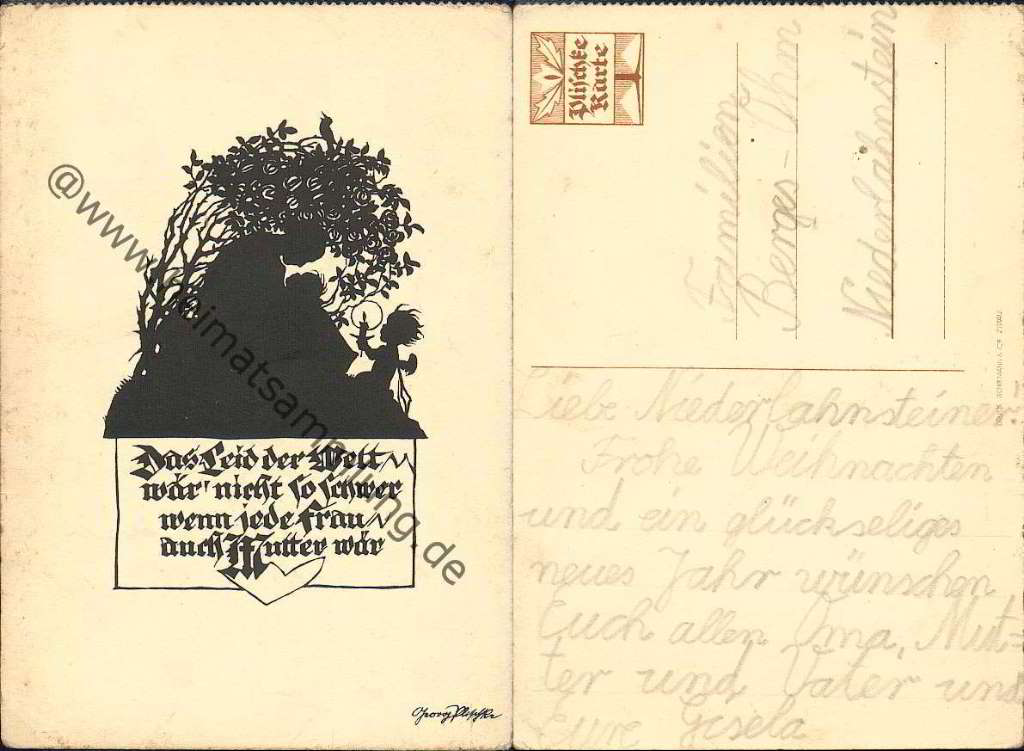 @www.heimatsammlung.de
Das Leid der Welt
wär' nicht so schwer
wenn jede Frau
auch Mutter wär
Georg Plischke
Plischke
Karte
Familien
Berges-Ihm
Niederlahnstein
Liebe Niederlahnsteiner!
Frohe Weihnachten
und ein glückseliges
neues Jahr wünschen
Euch allen Oma, Mut-
ter und Vater und
Eure Gisela